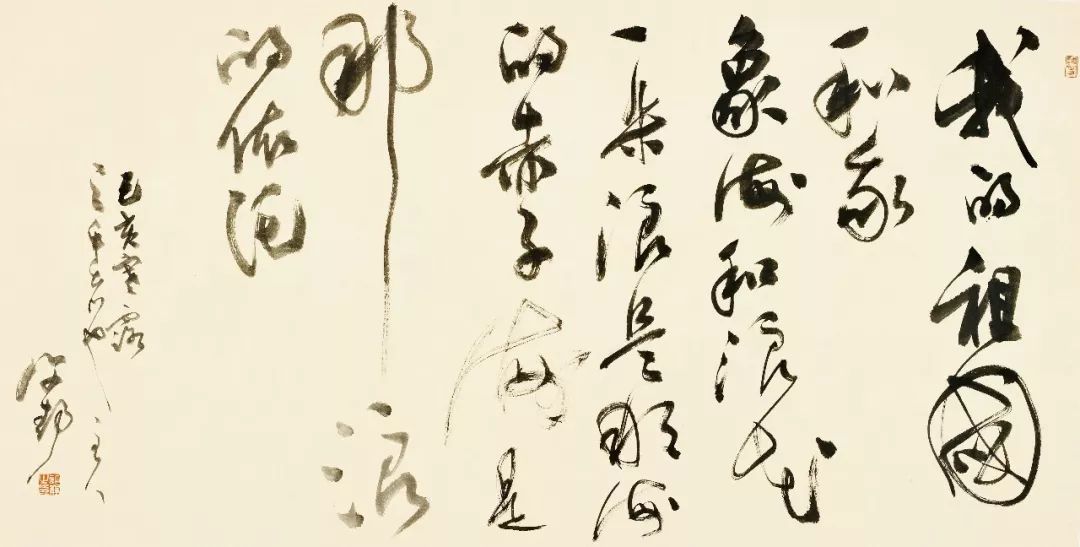 我的祖國
和我
象海和浪花
一朵浪是那海
的赤子海是
那浪
的依托
己亥寒露